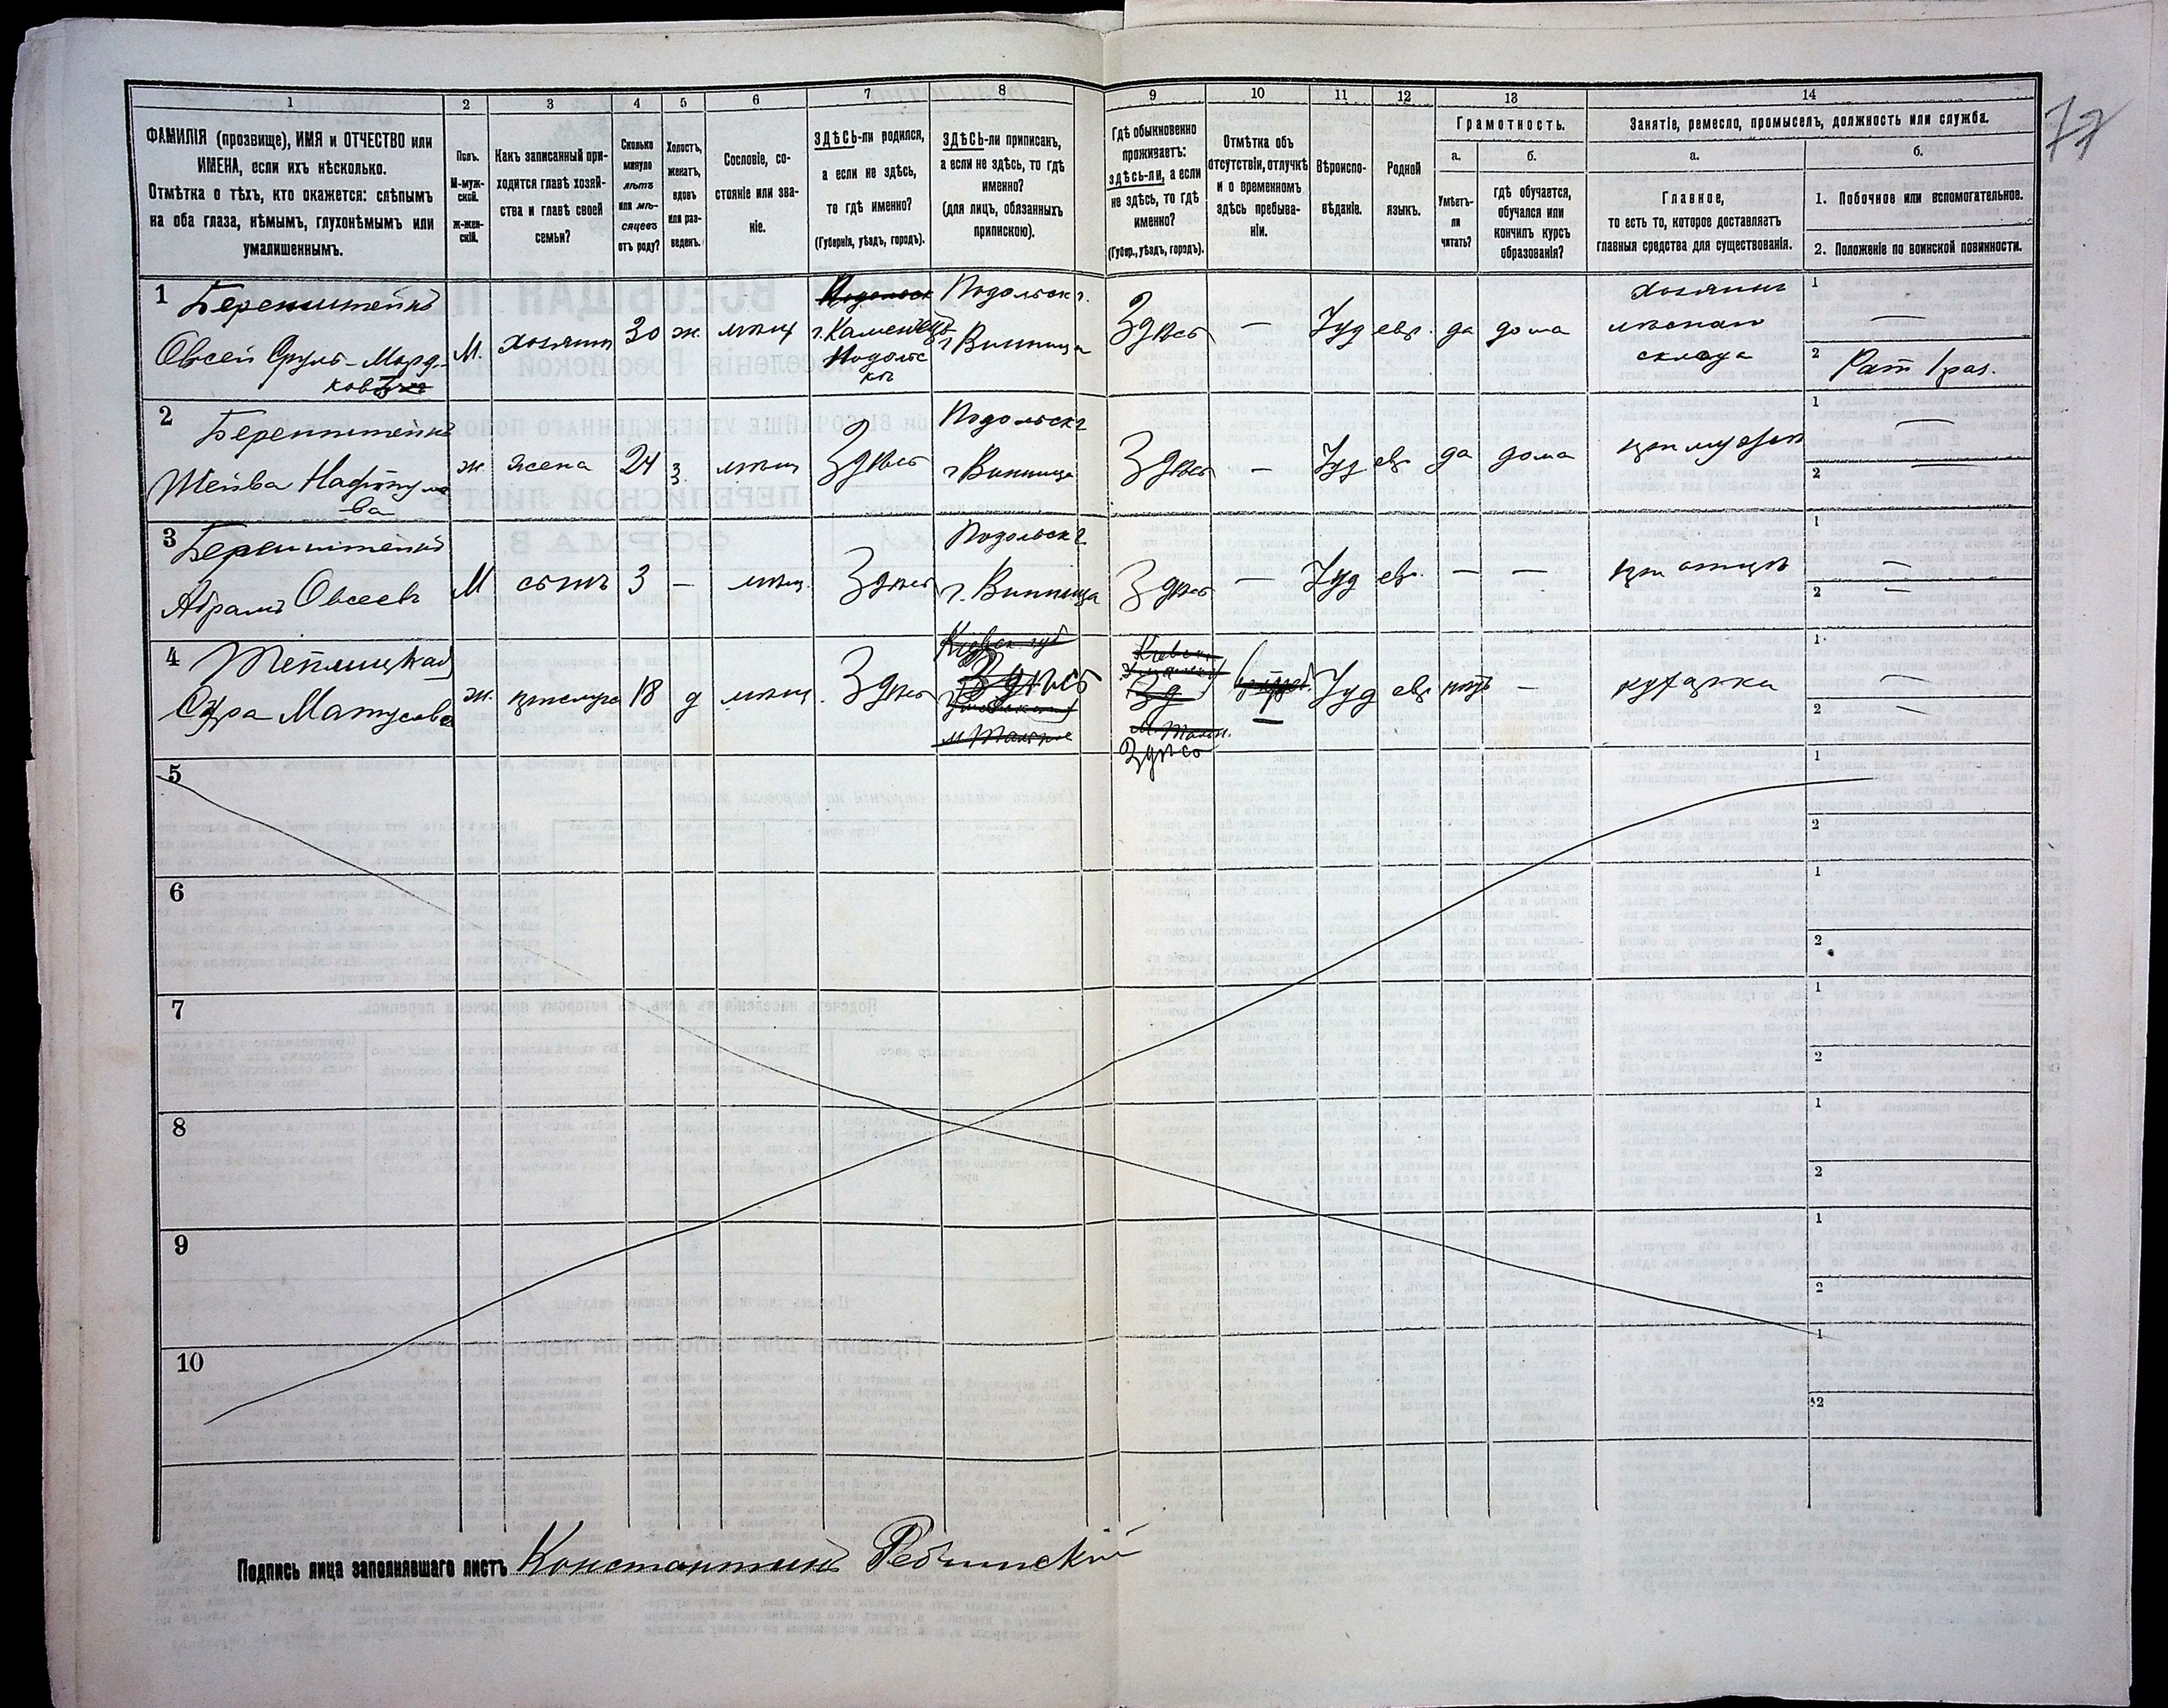 1 2 3 4 5 6 7 8 9 10 11 12 13 14
77
ФАМИЛІЯ (прозвище), ИМЯ и ОТЧЕСТВО или
ИМЕНА, если ихъ нѣсколько.
Отмѣтка о тѣхъ, кто окажется: слѣпымъ
на оба глаза, нѣмымъ, глухонѣмымъ или
умалишеннымъ.
Полъ.
М-муж-
ской.
ж-жен-
скій.
Какъ записанный при-
ходится главѣ хозяй-
ства и главѣ своей
семьи?
Сколько
минуло
лѣтъ
или мѣ-
сяцевъ
отъ роду?
Холостъ,
женатъ,
вдовъ
или раз-
веденъ.
Сословіе, со-
стояніе или зва-
ніе.
ЗДѢСЬ-ли родился,
а если не здѣсь,
то гдѣ именно?
(Губернія, уѣздъ, городъ).
ЗДѢСЬ-ли приписанъ,
а если не здѣсь, то гдѣ
именно?
(для лицъ, обязанныхъ
припискою).
Гдѣ обыкновенно
проживаетъ:
здѣсь-ли, а если
не здѣсь, то гдѣ
именно?
(Губер., уѣздъ, городъ).
Отмѣтка объ
отсутствіи, отлучкѣ
и о временномъ
здѣсь пребыва-
ніи.
Вѣроиспо-
вѣданіе.
Родной
языкъ.
Грамотность.
а.
Умѣетъ-
ли
читать?
б.
гдѣ обучается,
обучался или
кончилъ курсъ
образованія?
Занятіе, ремесло, промыселъ, должность или служба.
а.
Главное,
то есть то, которое доставляетъ
главныя средства для существованія.
б.
1. Побочное или вспомогательное.
2. Положеніе по воинской повинности.
1
Беренштейнъ
Овсей Сруль-Морд-
ковъ
М.
хозяинъ
30
ж.
мѣщ
Подольск
г. Каменецъ
Подольс
къ
Подольск г.
г Винница
Здѣсь
—
Іуд
евр.
да
дома
хозяинъ
лѣсного
склада
1 —
2 Рат 1 раз.
2
Беренштейнъ
Шейва Нафтуло
ва
ж.
жена
24
з
мѣщ
Здѣсь
Подольск г
г Винница
Здѣсь
—
Іуд
евр
да
дома
при мужѣ
1 —
2 —
3
Беренштейнъ
Абрамъ Овсеевъ
М
сынъ
3
—
мѣщ.
Здѣсь
Подольск г
г. Винница
Здѣсь
—
Іуд
евр.
—
—
при отцѣ
1 —
2 —
4
Теплицкая
Сура Матусова
ж.
прислуга
18
д
мѣщ.
Здѣсь
Киевск губ
Здѣсь
м Тальное
Киевск
Зд
м. Тальн.
Здѣсь
—
Іуд
евр
нѣтъ
—
кухарка
1 —
2 —
5 1
2
6 1
2
7 1
2
8 1
2
9 1
2
10 1
2
Подпись лица заполнявшаго листъ Константинъ